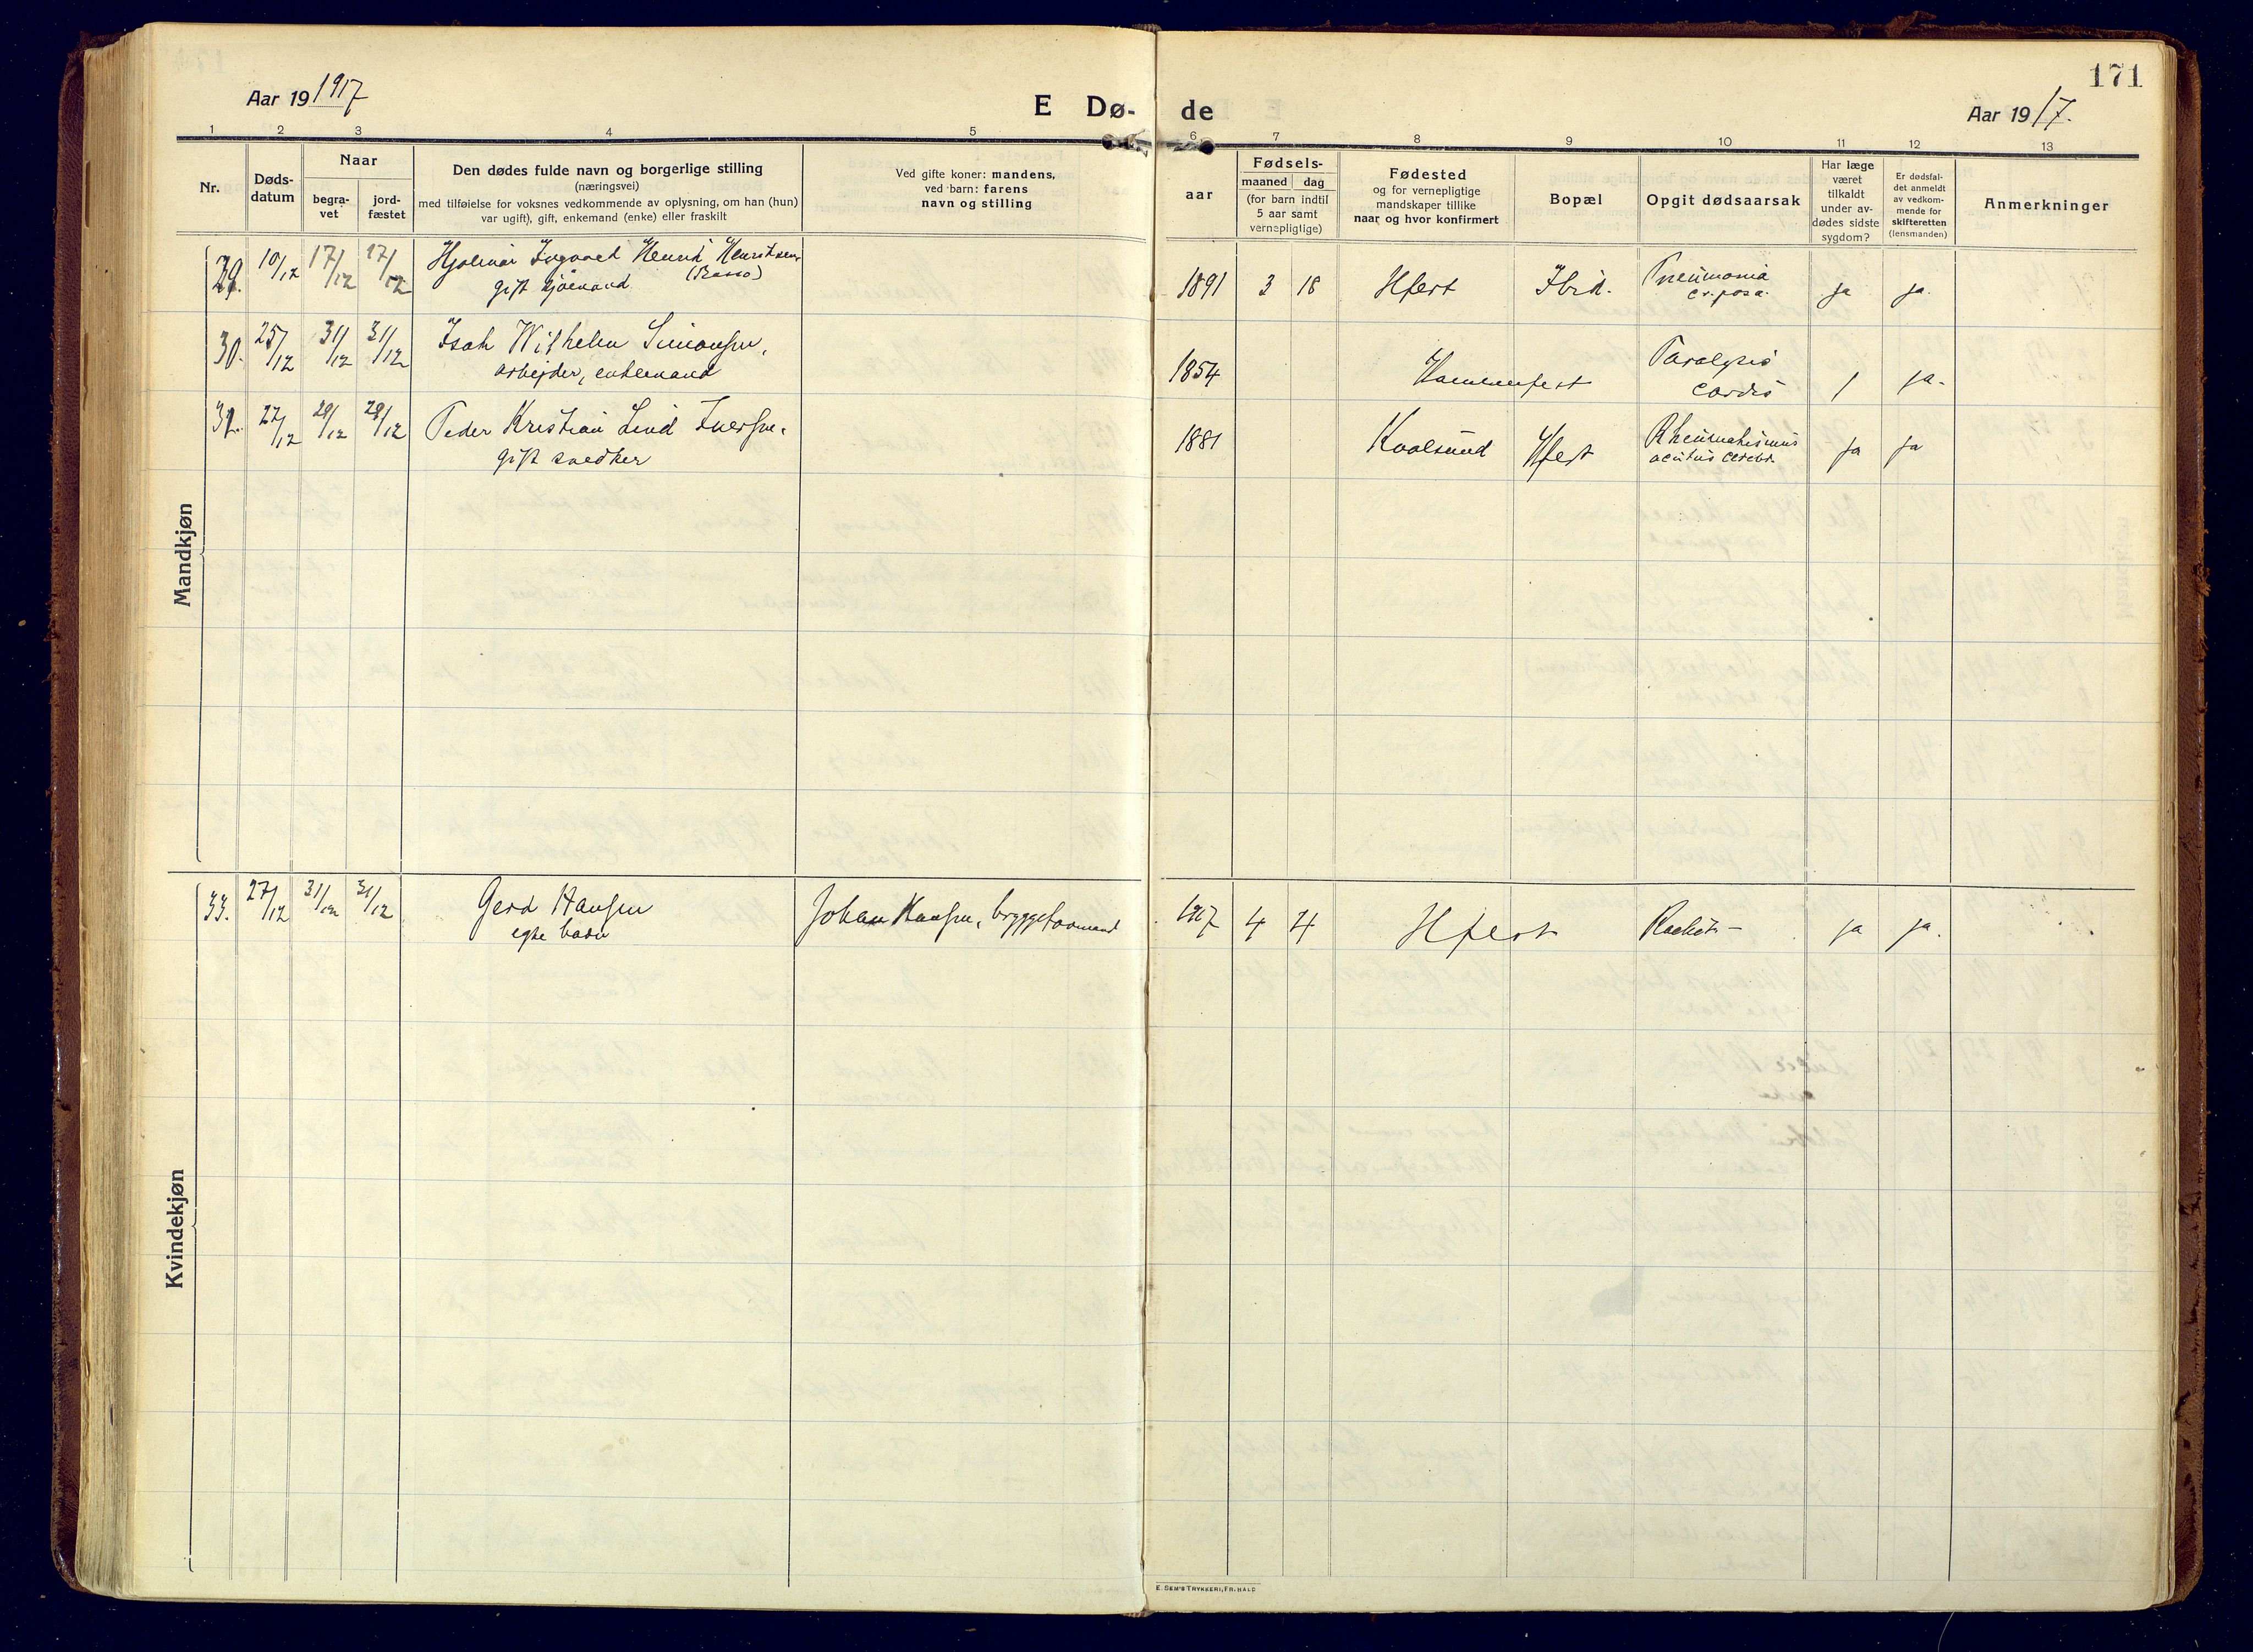 171
Aar 19 1917
E Dø-
de
Aar 19 17.
1 2 3 4 5 6 7 8 9 10 11 12 13
Nr.
Døds-
datum
Naar
begra-
vet
jord-
fæstet
Den dødes fulde navn og borgerlige stilling
(næringsvei)
med tilføielse for voksnes vedkommende av oplysning, om han (hun)
var ugift), gift, enkemand (enke) eller fraskilt
Ved gifte koner: mandens,
ved barn: farens
navn og stilling
aar
Fødsels-
maaned dag
(for barn indtil
5 aar samt
vernepligtige)
Fødested
og for vernepligtige
mandskaper tillike
naar og hvor konfirmert
Bopæl
Opgit dødsaarsak
Har læge
været
tilkaldt
under av-
dødes sidste
sygdom?
Er dødsfal-
det anmeldt
av vedkom-
mende for
skifteretten
(lensmanden)
Anmerkninger
Mandkjøn
29. 10/12 17/12 17/12 Hjalmar Ingvart Henrik Henriksen
gift (Basso)
1891 3 18 Hfest Ibid. Pneumonia
ja ja.
30. 25/12 31/12 31/12 Isak Wilhelm Simonsen,
arbejder, enkemand
1854 Hammerfest Paralysis
cordis 1 ja.
31. 27/12 29/12 29/12 Peder Kristian Lind Iversen.
gift snedker
1881 Kvalsund Hfest Rheumatismus
acutus cerebr. ja ja
Kvindekjøn
33. 27/12 31/12 31/12 Gerd Hansen
egte barn
Johan Hansen, bryggeformand
1917 4 4 Hfest Rachit- ja ja.
E. SEM'S TRYKKERI, FR.HALD